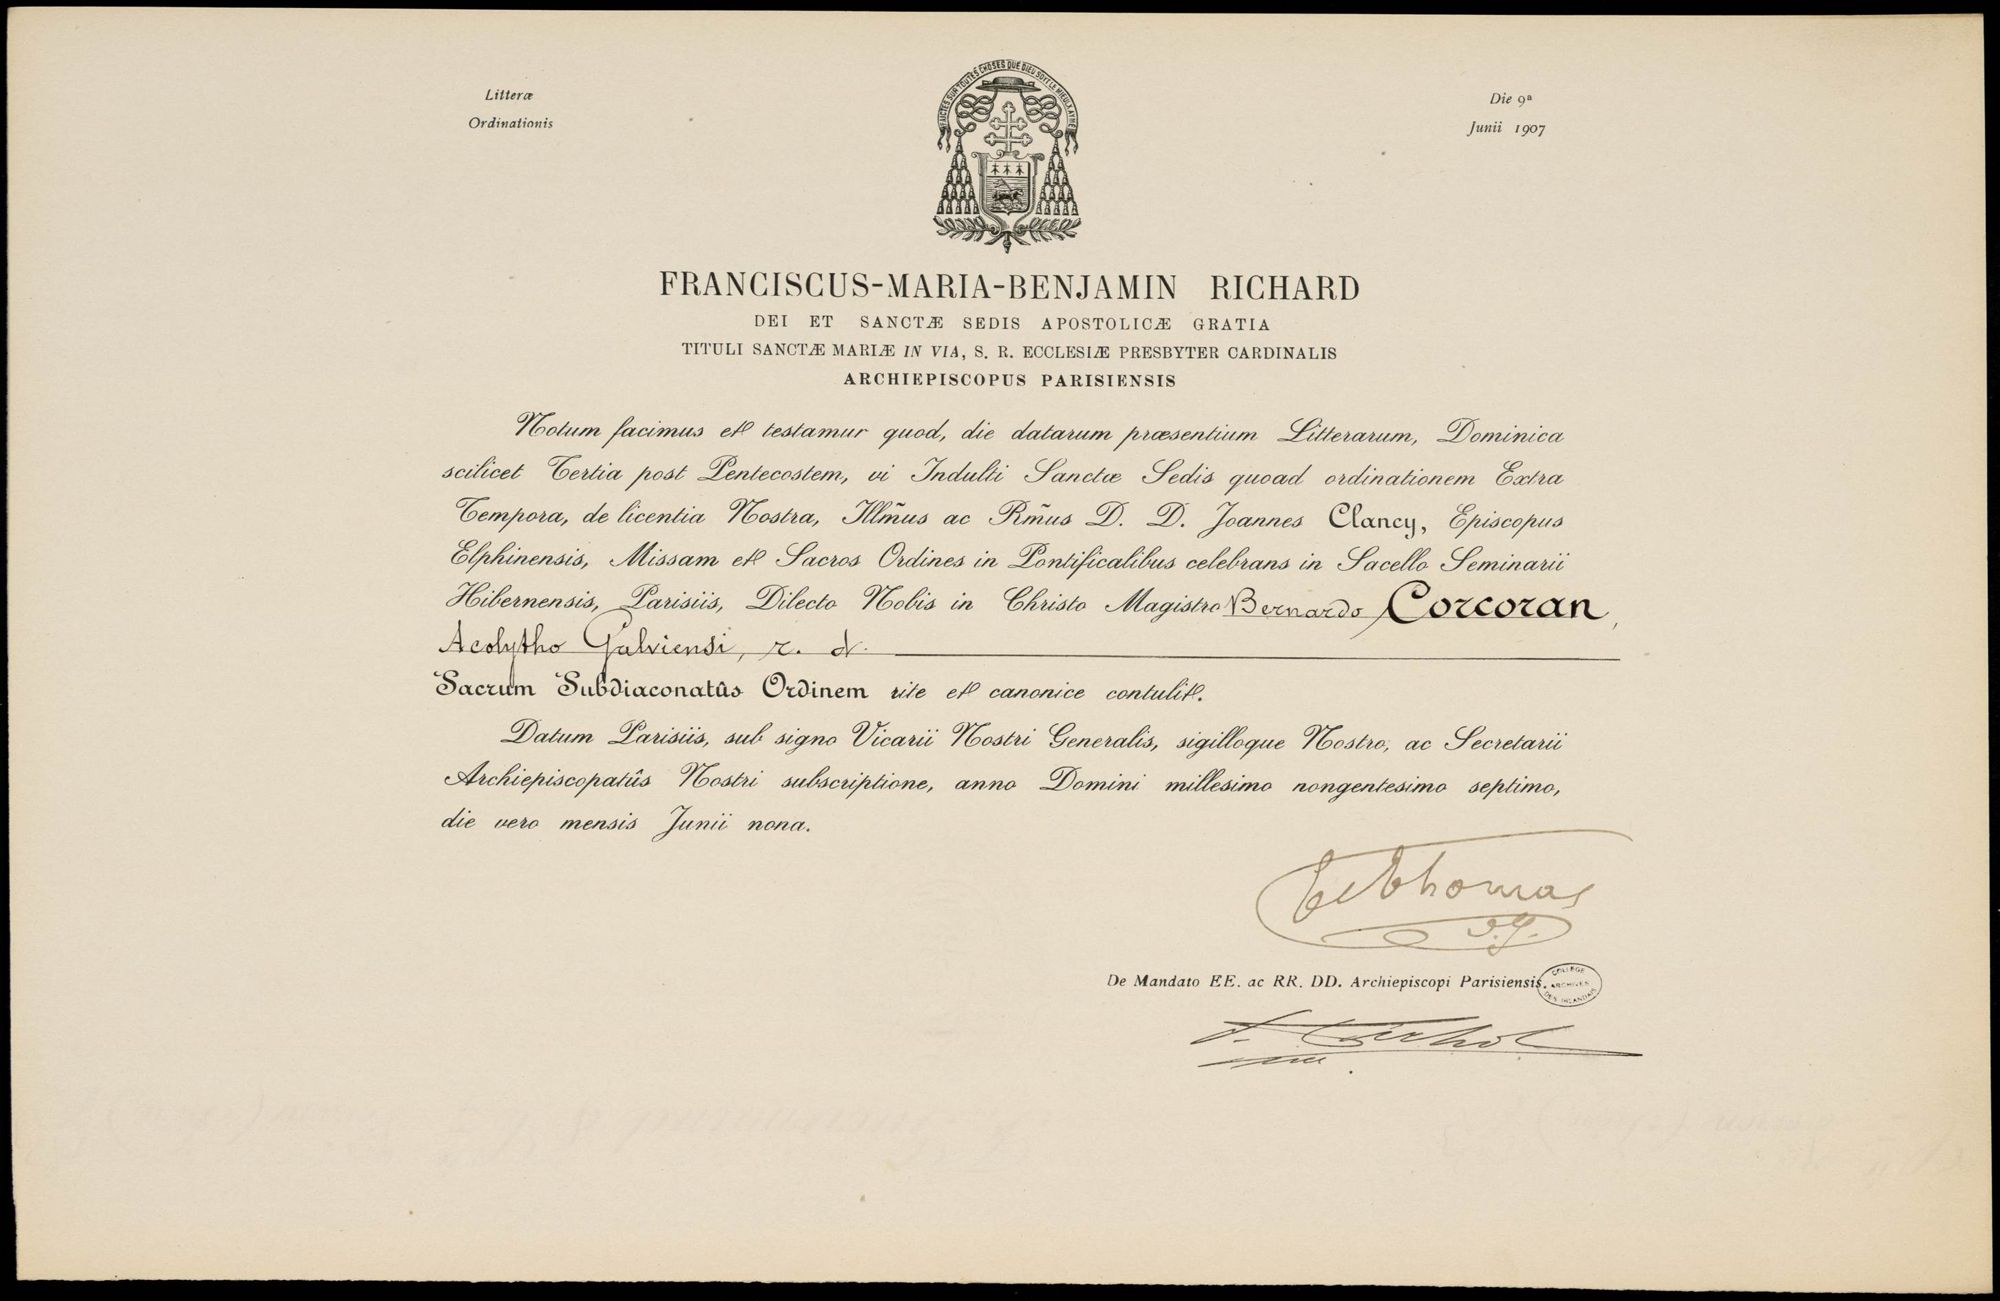 Litteræ
Ordinationis
Die 9ª
Junii 1907
FAICTES SUR TOUTES CHOSES QUE DIEU SOYT LE MIEULX AYMÉ
FRANCISCUS-MARIA-BENJAMIN RICHARD
DEI ET SANCTÆ SEDIS APOSTOLICÆ GRATIA
TITULI SANCTÆ MARIÆ IN VIA, S. R. ECCLESIÆ PRESBYTER CARDINALIS
ARCHIEPISCOPUS PARISIENSIS
Notum facimus et testamur quod, die datarum præsentium Litterarum, Dominica
scilicet Tertia post Pentecostem, vi Indulti Sanctæ Sedis quoad ordinationem Extra
Tempora, de licentia Nostra, Illm̃us ac Rm̃us D. D. Joannes Clancy, Episcopus
Elphinensis, Missam et Sacros Ordines in Pontificalibus celebrans in Sacello Seminarii
Hibernensis, Parisiis, Dilecto Nobis in Christo Magistro Bernardo Corcoran,
Acolytho Galviensi, r. d.
Sacrum Subdiaconatûs Ordinem rite et canonice contulit.
Datum Parisiis, sub signo Vicarii Nostri Generalis, sigilloque Nostro, ac Secretarii
Archiepiscopatûs Nostri subscriptione, anno Domini millesimo nongentesimo septimo,
die vero mensis Junii nona.
Thomas
v.g.
De Mandato EE. ac RR. DD. Archiepiscopi Parisiensis.
COLLEGE
ARCHIVES
DES IRLANDAIS